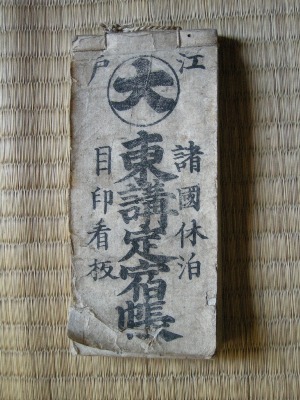 江戸
大
諸國休泊
東講定宿帳
目印看板